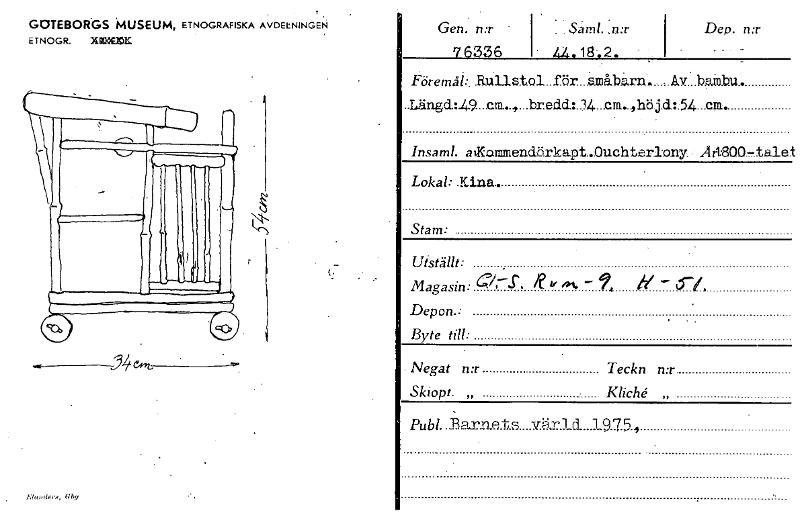 GÖTEBORGS MUSEUM, ETNOGRAFISKA AVDELNINGEN
ETNOGR.
54cm
34cm
Gen. n:r Saml. n:r Dep. n:r
76336 44.18.2.
Föremål: Rullstol för småbarn. Av bambu.
Längd:49 cm., bredd:34 cm.,höjd:54 cm.
Insaml. av Kommendörkapt.Ouchterlony År 1800-talet
Lokal: Kina.
Stam:
Utställt:
Magasin: Gl-S. Rum-9. H-51.
Depon.:
Byte till:
Negat n:r Teckn n:r
Skiopt. „ Kliché „
Publ. Barnets värld 1975,
Elanders, Gbg